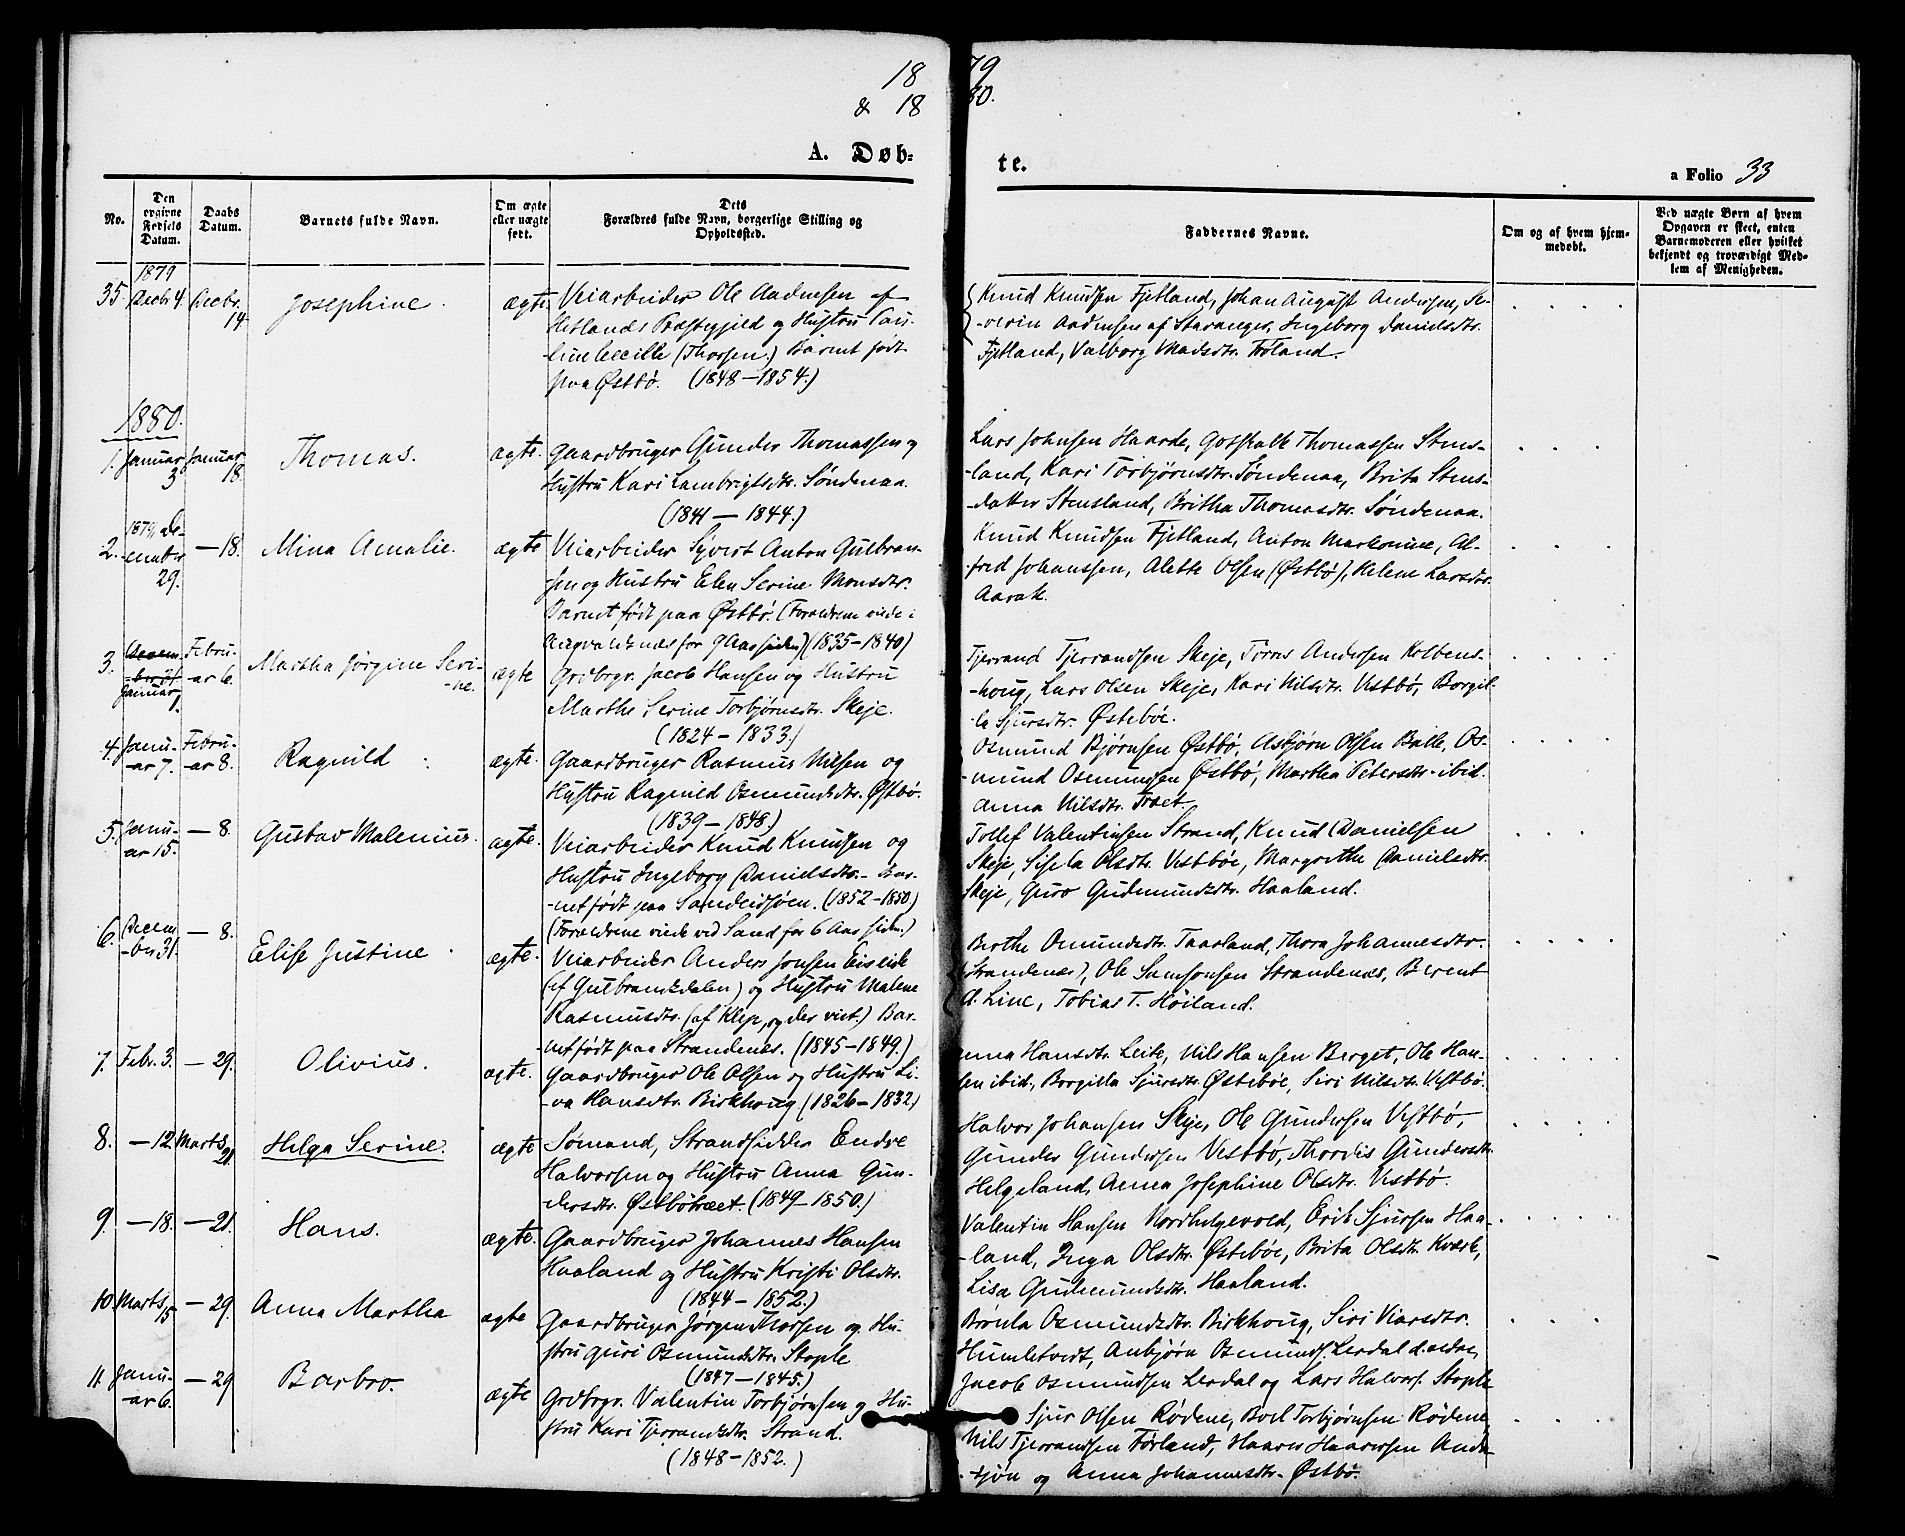 18 79
& 18 80.
A. Døb= te.
a Folio 33
No.
Den opgivne Fødsels Datum.
Daabs Datum.
Barnets fulde Navn.
Om ægte eller uægte født.
Dets Forældres fulde Navn, borgerlige Stilling og Opholdssted.
Faddernes Navne.
Om og af hvem hjemmedøbt.
Ved uægte Børn af hvem Opgaven er skeet, enten Barnemoderen eller hvilket bekjendt og troværdigt Medlem af Menigheden.
1879
35. Decbr 4 Decbr. 14 Josephine. ægte.
Veiarbeider Ole Aadnesen af
Hetlands Præstegjeld og Hustru Pau-
line Cecilie (Thorsen.) Barnet født
paa Østbø. (1848-1854.)
Knud Knudsen Fjetland, Johan August Andersen, Se-
-verin Aadnesen af Stavanger, Ingeborg Danielsdtr.
Fjetland, Valborg Madsdtr. Froland.
1880.
1. Januar 3 Januar 18. Thomas. ægte.
Gaardbruger Gunder Thomassen og
Hustru Kari Lambrigtsdtr. Søndenaa.
(1841-1844.)
Lars Johnsen Haarde, Gotskalk Thomassen Stens-
-land, Kari Torbjørnsdtr. Søndenaa, Brita Stens-
-datter Stensland, Britha Thomasdtr. Søndenaa.
2. 1879, De-
-cember 29. -18. Mina Amalie. ægte
Veiarbeider Syvert Anton Gulbran-
sen og Hustru Elen Serine Monsdtr.
Barnet født paa Østbø. (Forældrene viede i
Augvaldsnæs for 9 Aar siden) (1835-1840)
Knud Knudsen Fjetland, Anton Markonine, Al-
-fred Johanssen, Alette Olsen (Østbø), Helene Larsdtr.
Aarak.
3. Decem-
-ber 31
Januar 1. Febru-
-ar 6. Martha Jørgine Seri-
-ne. ægte
Grdbrgr. Jacob Hansen og Hustru
Marthe Serine Torbjørnsdtr. Skeje.
(1824-1833.)
Tjerrand Tjerrandsen Skeje, Tørres Andersen Kolbens-
-houg, Lars Olsen Skeje, Kari Nilsdtr. Vestbø, Borgil-
-la Sjursdtr. Østebøe.
4. Janu-
-ar 7. Febru-
-ar 8. Ragnild ægte.
Gaardbruger Rasmus Nilsen og
Hustru Ragnild Osmundsdtr. Østbø.
(1839-1848.)
Osmund Bjørnsen Østbø, Asbjørn Olsen Bakke, Os-
-mund Osmundsen Østbø, Martha Petersdtr. ibid.
Anna Nilsdtr. Træet.
5. Janu-
-ar 15. -8. Gustav Malenius. ægte.
Veiarbeider Knud Knudsen og
Hustru Ingeborg Danielsdtr. Bar-
-net født paa Sandeidsøen. (1852-1850)
(Forældrene viede ved Sand for 6 Aar siden.)
Tollef Valentinsen Strand, Knud Danielsen
Skeje, Sisela Olsdtr. Vestbøe, Margrethe Danielsdtr.
Skeje, Guro Gudmundsdtr. Haaland.
6. Decem-
-ber 31. -8. Elise Justine ægte.
Veiarbeider Anders Jonsen Eiseide
(af Gulbrandsdalen) og Hustru Malene
Rasmusdtr. (af Klep, og der viet.) Bar-
-net født paa Strandenæs. (1845-1849.)
Berthe Osmundsdtr. Taarland, Thora Johannesdtr.
(Strandenæs), Ole Samsonsen Strandenæs, Berent
A. Line, Tobias T. Høiland.
7. Febr. 3. -29. Olivius. ægte.
Gaardbruger Ole Olsen og Hustru Li-
-va Hansdtr. Birkhoug (1826-1832)
Anna Hansdtr. Leite, Nils Hansen Berget, Ole Han-
sen ibid., Borgilla Sjursdtr. Østebøe, Siri Nilsdtr. Vestbø.
8. -12. Marts 21. Helga Serine. ægte
Sømand, Strandsidder Endre
Halvorsen og Hustru Anna Gun-
-dersdtr. Østbøtræet. (1849-1850.)
Halvor Johansen Skeje, Ole Gundersen Vestbø,
Gunder Gundersen Vestbø, Thordis Gundersdtr.
Helgeland, Anna Josephine Olsdtr. Vestbø.
9. -18. -21. Hans. ægte.
Gaardbruger Johannes Hansen
Haaland og Hustru Kristi Olsdtr.
(1844-1852.)
Valentin Hansen Nordhelgevold, Erik Sjursen Haa-
-land, Inga Olsdtr. Østebøe, Brita Olsdtr. Kværk,
Lisa Gudmundsdtr. Haaland.
10. Marts 15. -29. Anna Martha ægte
Gaardbruger Jørgen Thorsen og Hu-
stru Guri Osmundsdtr. Stople
(1847-1845.)
Brønla Osmundsdtr. Birkhoug, Siri Viarsdtr.
Humletvedt, Anbjørn Osmunds. Lerdal d. ældre,
Jacob Osmundsen Lerdal og Lars Halvors. Stople
11. Janu-
-ar 6. -29 Barbro. ægte
Grdbrgr. Valentin Torbjørnsen og Hu-
stru Kari Tjerrandsdtr. Strand.
(1848-1852.)
Sjur Olsen Rødene, Boel Torbjørnsen Rødene,
Nils Tjerrandsen Førland, Haaver Haaversen Anda-
-sjøn og Anna Johannesdtr. Østbø.